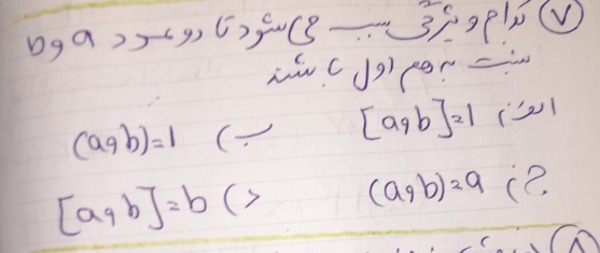 ۷) کدام ویژگی سبب می‌شود تا دو عدد a و b
نسبت به هم اول باشند
الف) [a و b]=1 ب) (a و b)=1
ج) (a و b)=a د) [a و b]=b
۸)